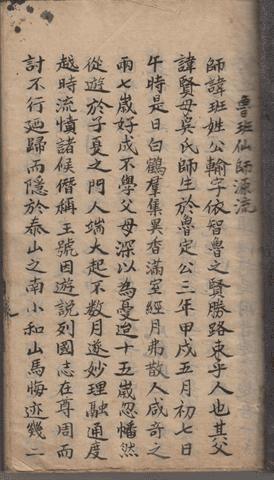 魯班仙師源流
師諱班姓公輸字依智魯之賢勝路東平人也其父
諱賢母吳氏師生於魯定公三年甲戌五月初七日
午時是日白鶴羣集異香滿室經月弗散人咸奇之
甫七歲好戍不學父母深以為憂迨十五歲忽幡然
從遊於子夏之門人端大起不数月遂妙理融通度
越時流憤諸侯僭稱王號因遊說列國志在尊周而
討不行廼歸而隱於泰山之南小和山馬悔迹幾二